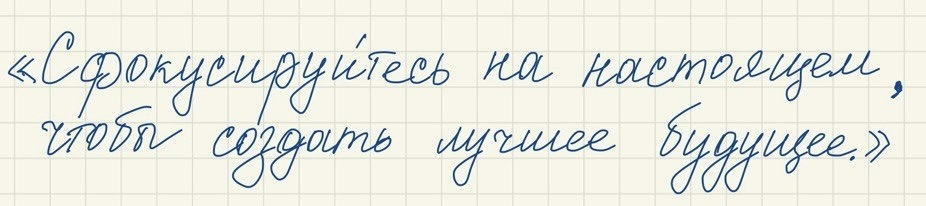 «Сфокусируйтесь на настоящем,
чтобы создать лучшее будущее.»